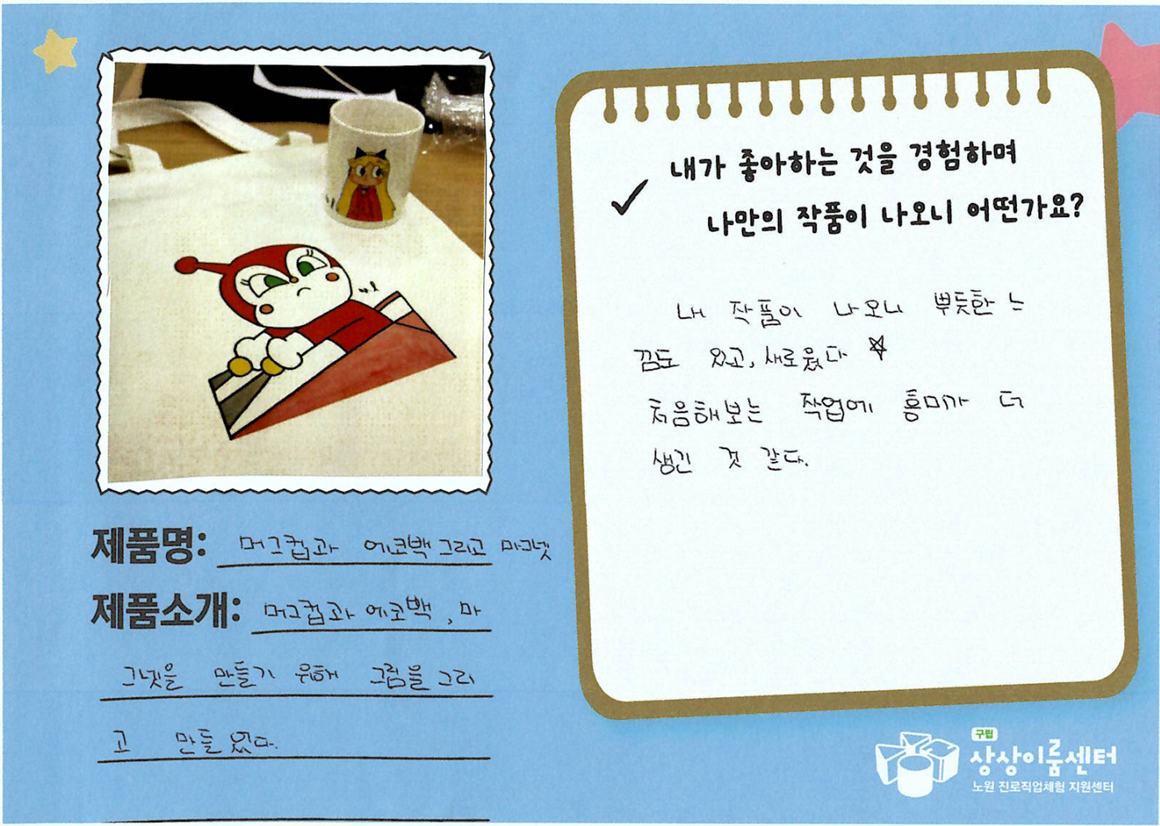 제품명: 머그컵과 에코백 그리고 마그넷
제품소개: 머그컵과 에코백, 마
그넷을 만들기 위해 그림을 그리
고 만들었다.
✓ 내가 좋아하는 것을 경험하며
나만의 작품이 나오니 어떤가요?
내 작품이 나오니 뿌듯한 느
낌도 있고, 새로웠다 ☆
처음해보는 작업에 흥미가 더
생긴 것 같다.
구립
상상이룸센터
노원 진로직업체험 지원센터